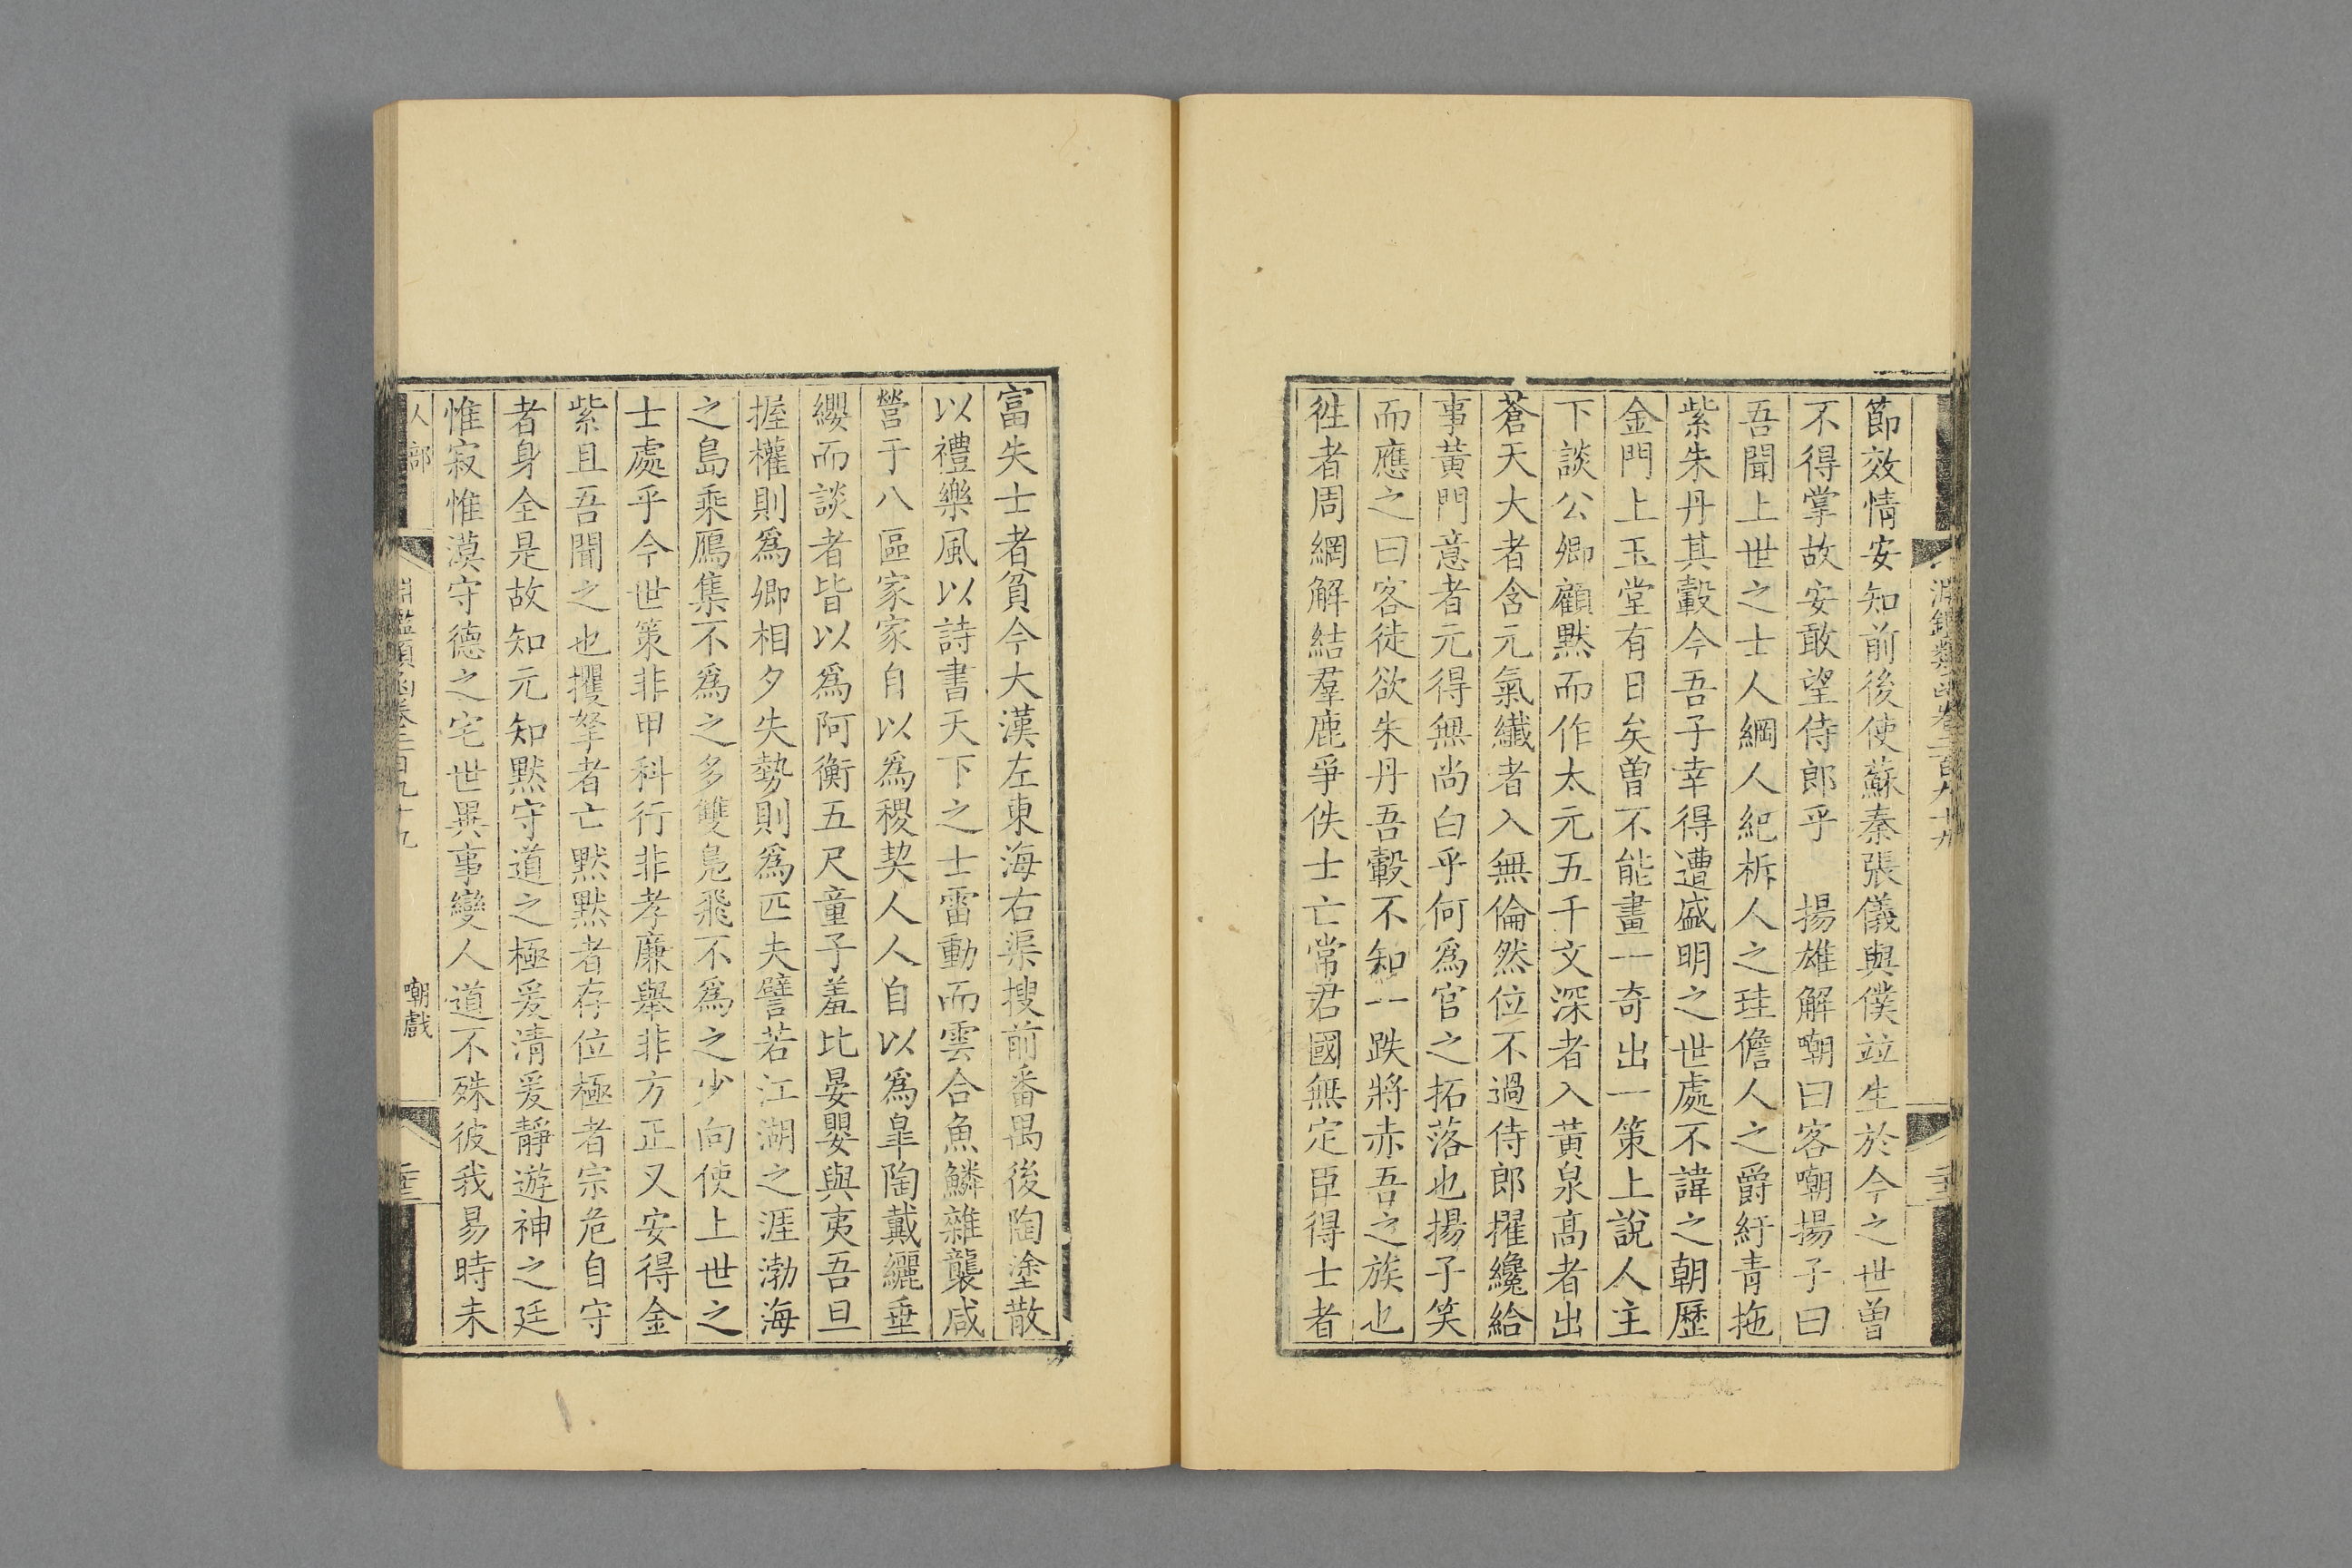 節效情安知前後使蘇秦張儀與僕竝生於今之世曾
不得掌故安敢望侍郎乎　揚雄解嘲曰客嘲揚子曰
吾聞上世之士人綱人紀析人之珪儋人之爵紆青拖
紫朱丹其轂今吾子幸得遭盛明之世處不諱之朝歷
金門上玉堂有日矣曾不能畫一奇出一策上說人主
下談公卿顧默而作太元五千文深者入黃泉高者出
蒼天大者含元氣纎者入無倫然位不過侍郎擢纔給
事黃門意者元得無尚白乎何爲官之拓落也揚子笑
而應之曰客徒欲朱丹吾轂不知一跌將赤吾之族也
徃者周網解結羣鹿爭佚士亡常君國無定臣得士者
富失士者貧今大漢左東海右渠搜前番禺後陶塗散
以禮樂風以詩書天下之士雷動而雲合魚鱗雜襲咸
營于八區家家自以爲稷契人人自以爲臯陶戴纚垂
纓而談者皆以爲阿衡五尺童子羞比晏嬰與夷吾旦
握權則爲卿相夕失勢則爲匹夫譬若江湖之涯渤海
之島乘鴈集不爲之多雙鳧飛不爲之少向使上世之
士處乎今世策非甲科行非孝廉舉非方正又安得金
紫且吾聞之也攫拏者亡默默者存位極者宗危自守
者身全是故知元知默守道之極爰清爰靜遊神之廷
惟寂惟漠守德之宅世異事變人道不殊彼我易時未
人部
淵鑑類函卷三百九十九
嘲戲